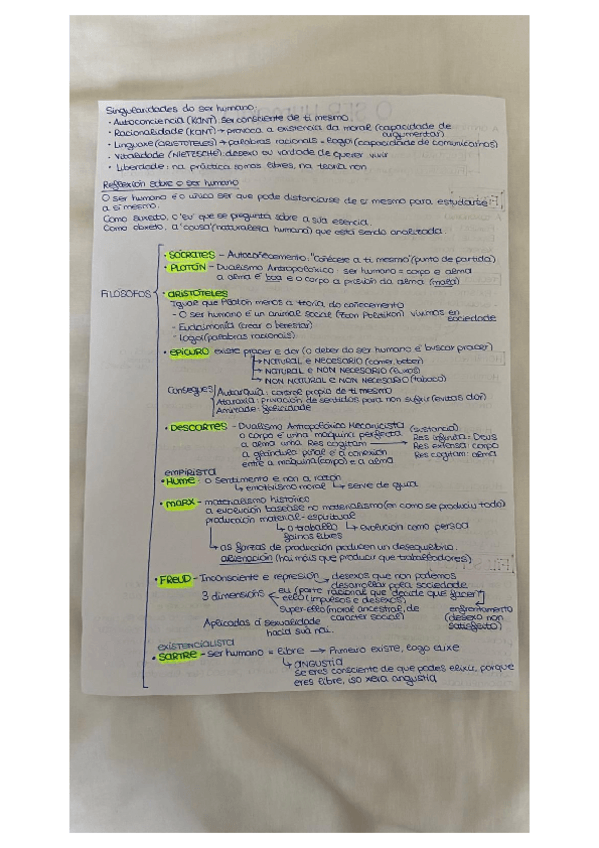 Singularidades do ser humano:
• Autoconciencia (KANT): ser consciente de ti mesmo
• Racionalidade (KANT) → provoca a existencia da moral (capacidade de argumentar)
• Linguaxe (ARISTÓTELES) → palabras racionais = logo (capacidade de comunicarnos)
• Vitalidade (NIETZSCHE): desexo ou vontade de querer vivir
• Liberdade: na práctica somos libres, na teoría non
Reflexión sobre o ser humano
O ser humano é o único ser que pode distanciarse de si mesmo para estudarse
a si mesmo.
Como suxeito, o "eu" que se pregunta sobre a súa esencia.
Como obxeto, a "cousa" (natureza humana) que está sendo analizada.
FILÓSOFOS
• SÓCRATES - Autocoñecemento: "Coñécete a ti mesmo" (punto de partida)
• PLATÓN - Dualismo Antropolóxico: ser humano = corpo e alma
a alma é boa e o corpo a prisión da alma (mala)
• ARISTÓTELES
Igual que Platón menos a teoría do coñecemento
- O ser humano é un animal social (Zoon Politikon) vivimos en sociedade
- Eudaimonía (crear o benestar)
- Logo (palabras racionais)
• EPICURO existe pracer e dor (o deber do ser humano é buscar pracer)
→ NATURAL e NECESARIO (comer, beber)
→ NATURAL e NON NECESARIO (luxos)
→ NON NATURAL e NON NECESARIO (tabaco)
Consegues
Autarquía: control propio de ti mesmo
Ataraxia: privación de sentidos para non sufrir (evitas dor)
Amizade: felicidade
• DESCARTES - Dualismo Antropolóxico Mecanicista (sustancia)
o corpo é unha máquina perfecta
a alma unha Res cogitam → Res infinita: Deus
a glándula pineal é a conexión Res extensa: corpo
entre a máquina (corpo) e a alma Res cogitam: alma
EMPIRISTA
• HUME: o sentimento e non a razón
→ emotivismo moral → serve de guía
• MARX - materialismo histórico
a evolución baséase no materialismo (en como se produciu todo)
producción material - espiritual
→ o traballo → evolución como persoa
fainos libres
→ as forzas de producción producen un desequilibrio:
alienación (hai máis que producir que traballadores)
• FREUD - Inconsciente e represión → desexos que non podemos
desarrollar pola sociedade
3 dimensións
eu (parte racional que decide que facer)
ello (impulsos e desexos)
Super ello (moral ancestral, de
carácter social)
enfrontamento
(desexo non
satisfeito)
Aplicadas á sexualidade
hacia súa nai..
EXISTENCIALISTA
• SARTRE - ser humano = libre → Primeiro existe, logo elixe
→ ANGUSTIA
se eres consciente de que podes elixir, porque
eres libre, iso xera angustia